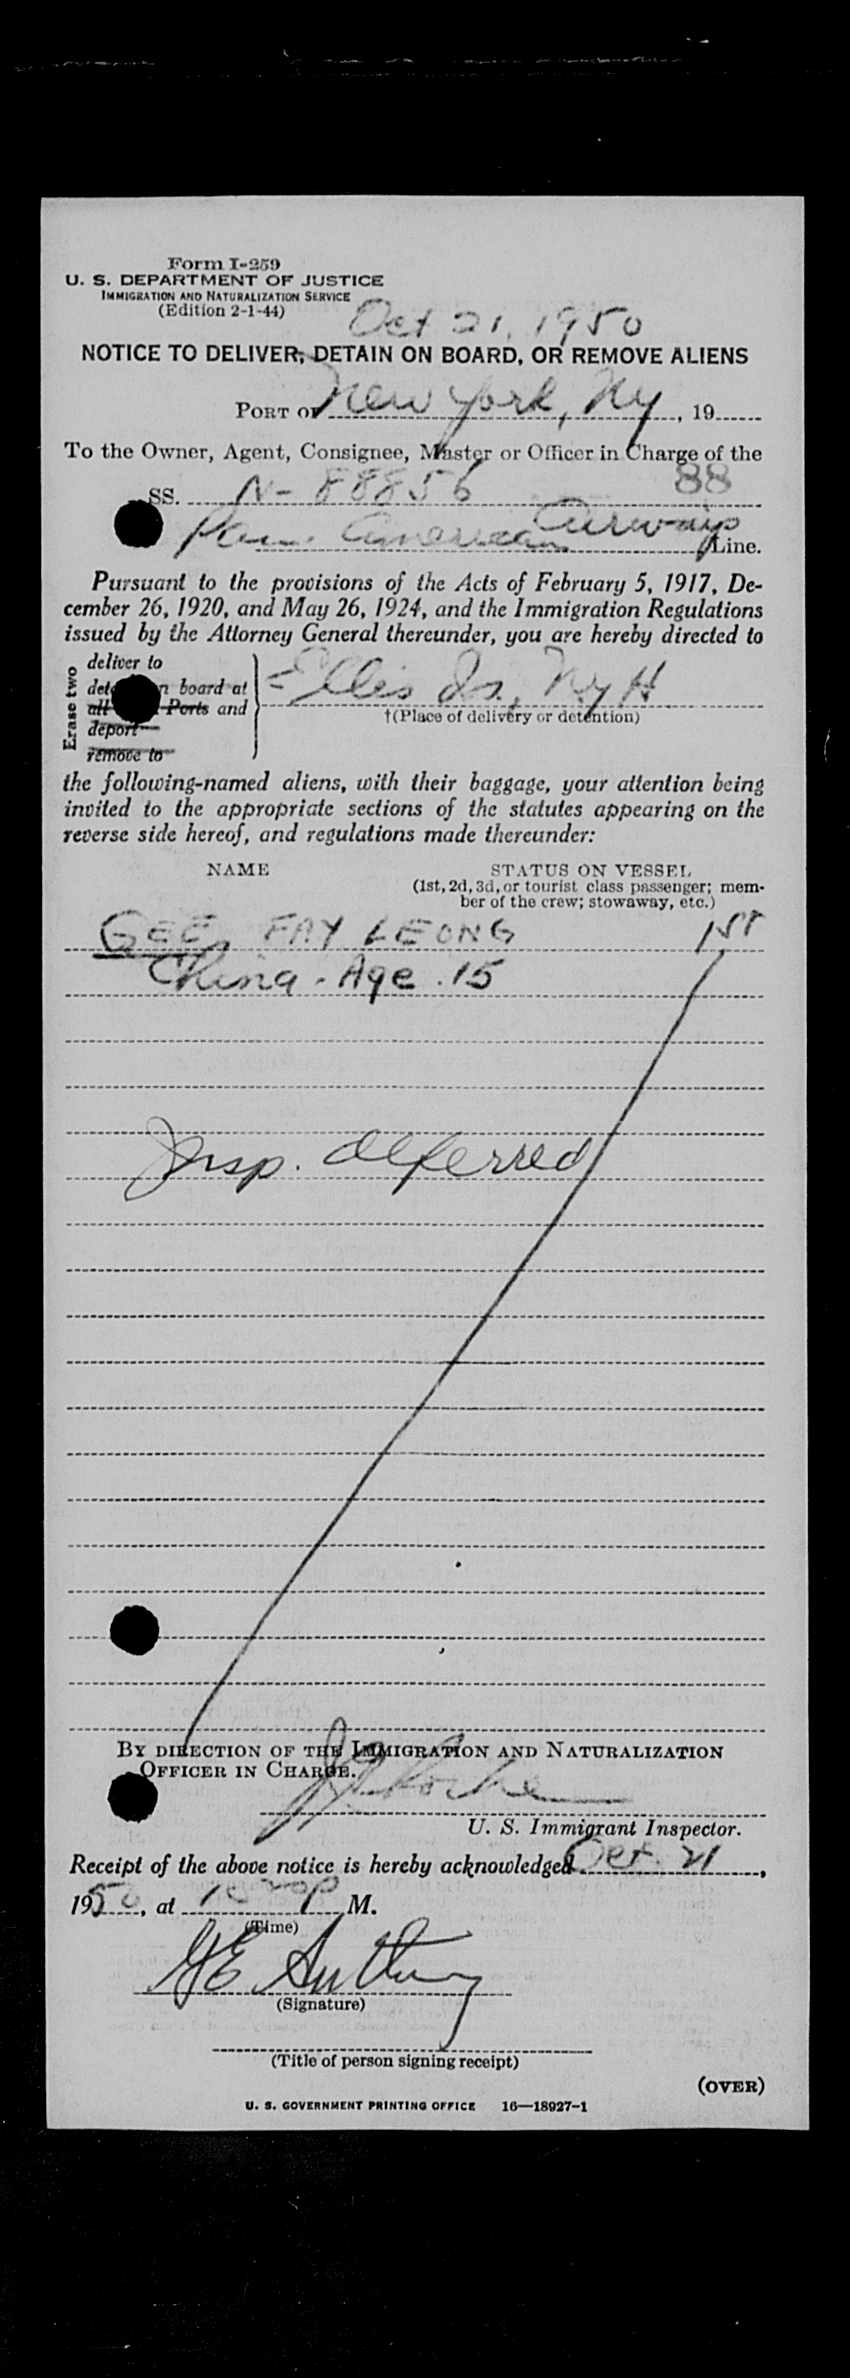 Form I-259
U. S. DEPARTMENT OF JUSTICE
IMMIGRATION AND NATURALIZATION SERVICE
(Edition 2-1-44)
Oct 21, 1950
NOTICE TO DELIVER, DETAIN ON BOARD, OR REMOVE ALIENS
PORT OF New York, Ny, 19
To the Owner, Agent, Consignee, Master or Officer in Charge of the
88
SS. N-88856
Pan American Airways Line.
Pursuant to the provisions of the Acts of February 5, 1917, De-
cember 26, 1920, and May 26, 1924, and the Immigration Regulations
issued by the Attorney General thereunder, you are hereby directed to
Erase two
deliver to
board at
Ports and
deport
remove to
Ellis Is., Ny H
†(Place of delivery or detention)
the following-named aliens, with their baggage, your attention being
invited to the appropriate sections of the statutes appearing on the
reverse side hereof, and regulations made thereunder:
NAME STATUS ON VESSEL
(1st, 2d, 3d, or tourist class passenger; mem-
ber of the crew; stowaway, etc.)
GEE, FAY LEONG 1ST
China - Age 15
Insp. deferred
BY DIRECTION OF THE IMMIGRATION AND NATURALIZATION
OFFICER IN CHARGE.
Roche
U. S. Immigrant Inspector.
Receipt of the above notice is hereby acknowledged Oct. 21,
1950, at P M.
(Time)
GE Anthony
(Signature)
(Title of person signing receipt)
(OVER)
U. S. GOVERNMENT PRINTING OFFICE 16—18927-1